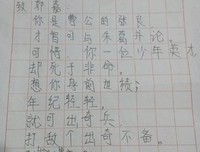 致郭嘉
你是曹公的张良
才智可与朱葛并论。
可惜,你一位少年英才
却死于非命。
想你导南业绩;
年纪轻轻,
就可出奇兵,
打敌个出奇不备。